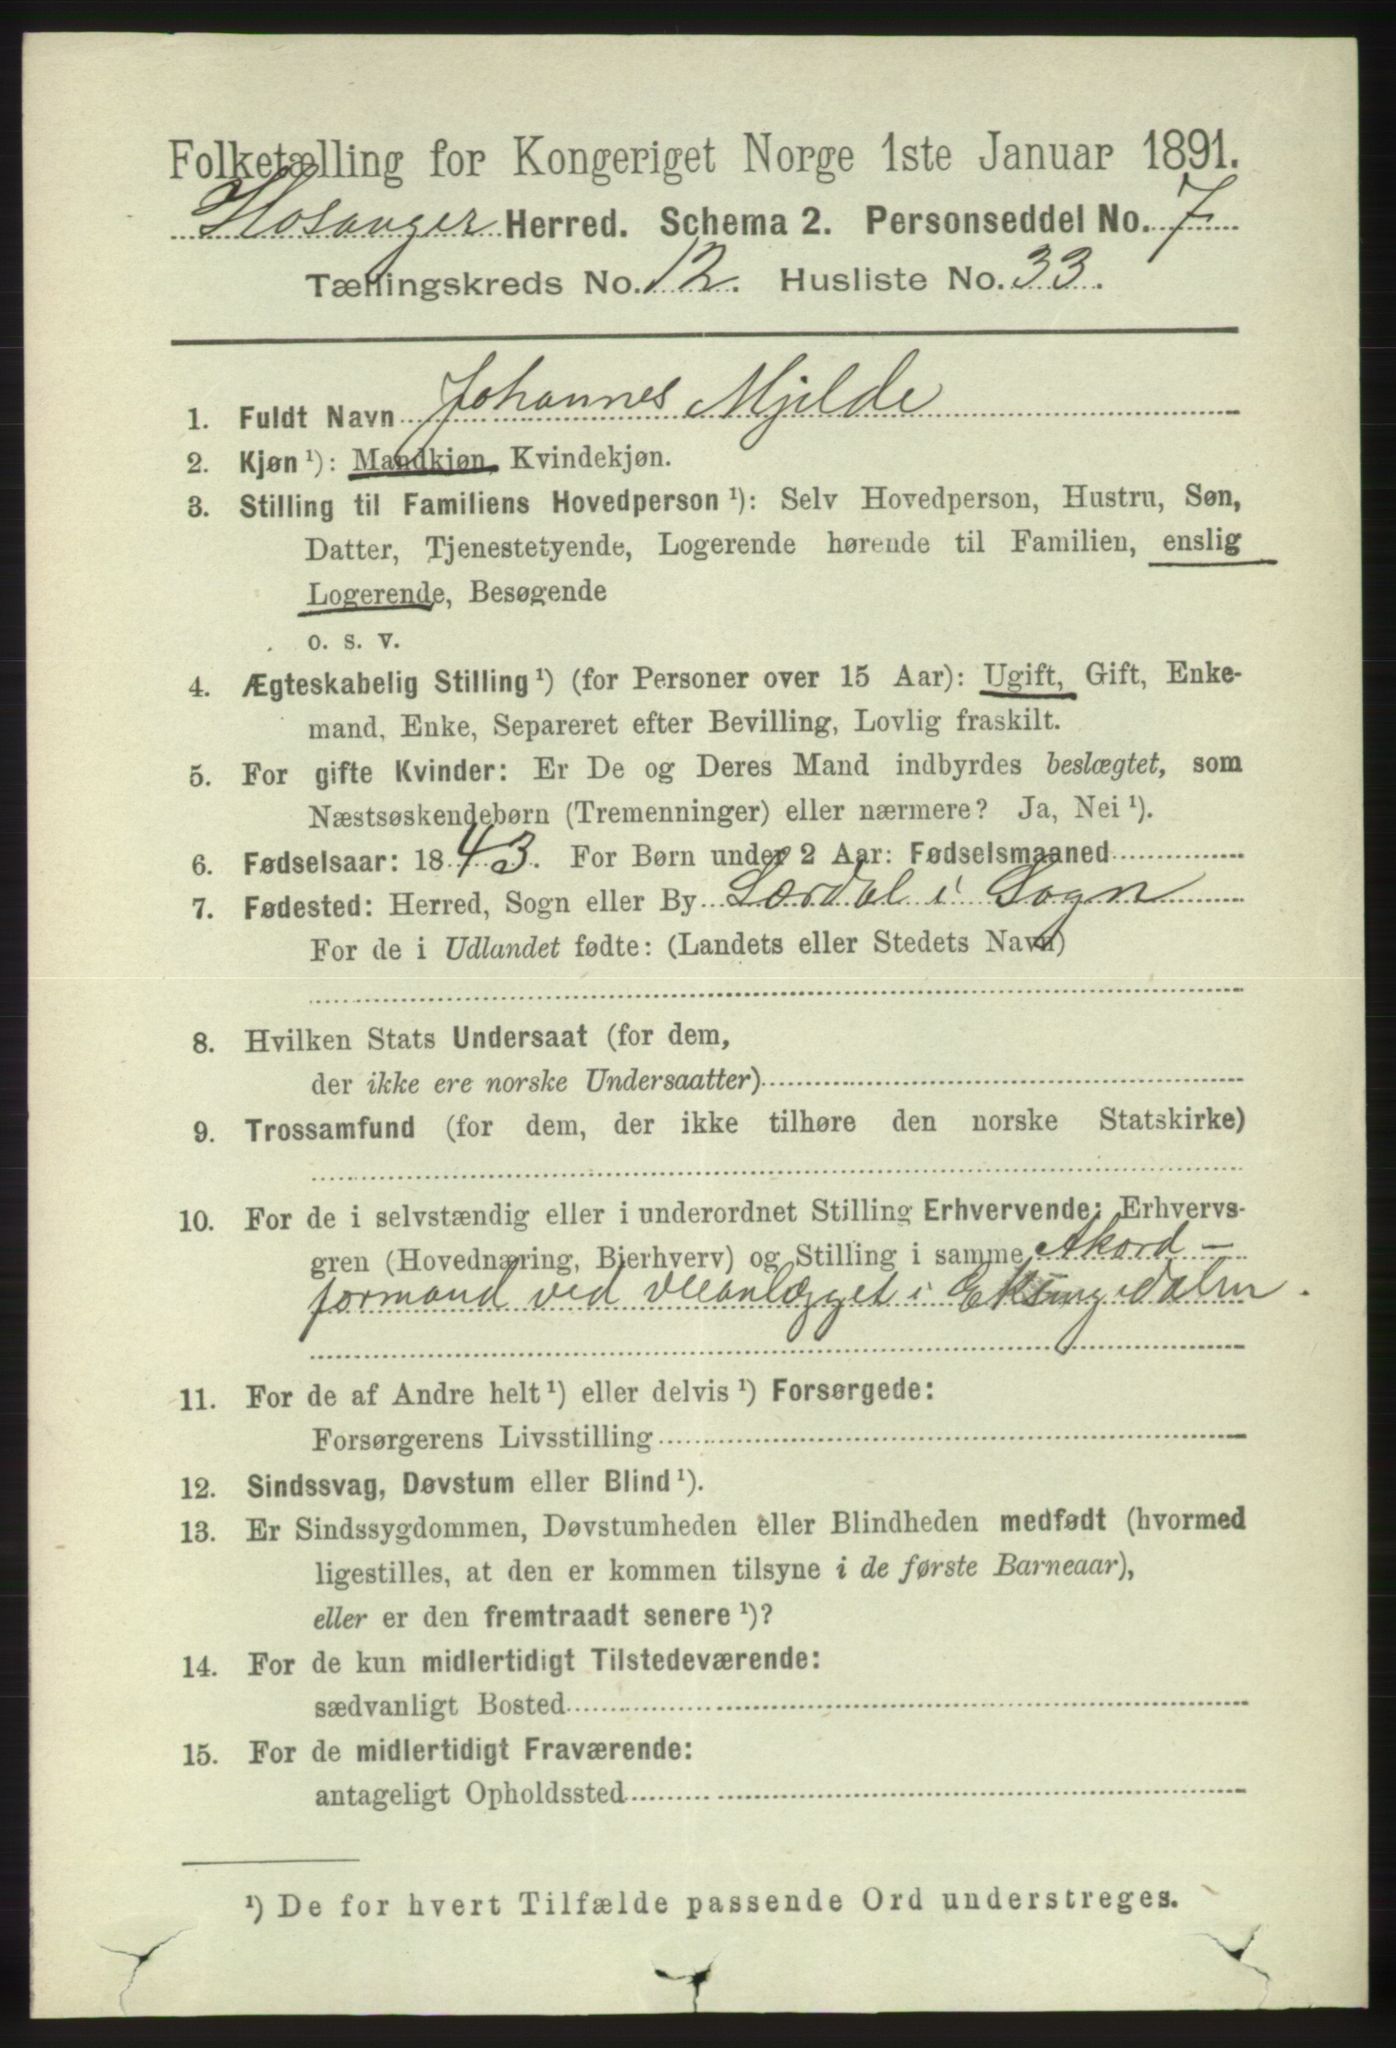 Folketælling for Kongeriget Norge 1ste Januar 1891.
Hosanger Herred. Schema 2. Personseddel No. 7
Tællingskreds No. 12. Husliste No. 33.
1. Fuldt Navn Johannes Mjelde
2. Kjøn ¹): Mandkjøn, Kvindekjøn.
3. Stilling til Familiens Hovedperson ¹): Selv Hovedperson, Hustru, Søn,
Datter, Tjenestetyende, Logerende hørende til Familien, enslig
Logerende, Besøgende
o. s. v.
4. Ægteskabelig Stilling ¹) (for Personer over 15 Aar): Ugift, Gift, Enke-
mand, Enke, Separeret efter Bevilling, Lovlig fraskilt.
5. For gifte Kvinder: Er De og Deres Mand indbyrdes beslægtet, som
Næstsøskendebørn (Tremenninger) eller nærmere? Ja, Nei ¹).
6. Fødselsaar: 1843. For Børn under 2 Aar: Fødselsmaaned
7. Fødested: Herred, Sogn eller By Lærdal i Sogn
For de i Udlandet fødte: (Landets eller Stedets Navn)
8. Hvilken Stats Undersaat (for dem,
der ikke ere norske Undersaatter)
9. Trossamfund (for dem, der ikke tilhøre den norske Statskirke)
10. For de i selvstændig eller i underordnet Stilling Erhvervende: Erhvervs-
gren (Hovednæring, Bierhverv) og Stilling i samme Akord-
formand ved Veianlægget i Eksingedalen.
11. For de af Andre helt ¹) eller delvis ¹) Forsørgede:
Forsørgerens Livsstilling
12. Sindssvag, Døvstum eller Blind ¹).
13. Er Sindssygdommen, Døvstumheden eller Blindheden medfødt (hvormed
ligestilles, at den er kommen tilsyne i de første Barneaar),
eller er den fremtraadt senere ¹)?
14. For de kun midlertidigt Tilstedeværende:
sædvanligt Bosted
15. For de midlertidigt Fraværende:
antageligt Opholdssted
¹) De for hvert Tilfælde passende Ord understreges.